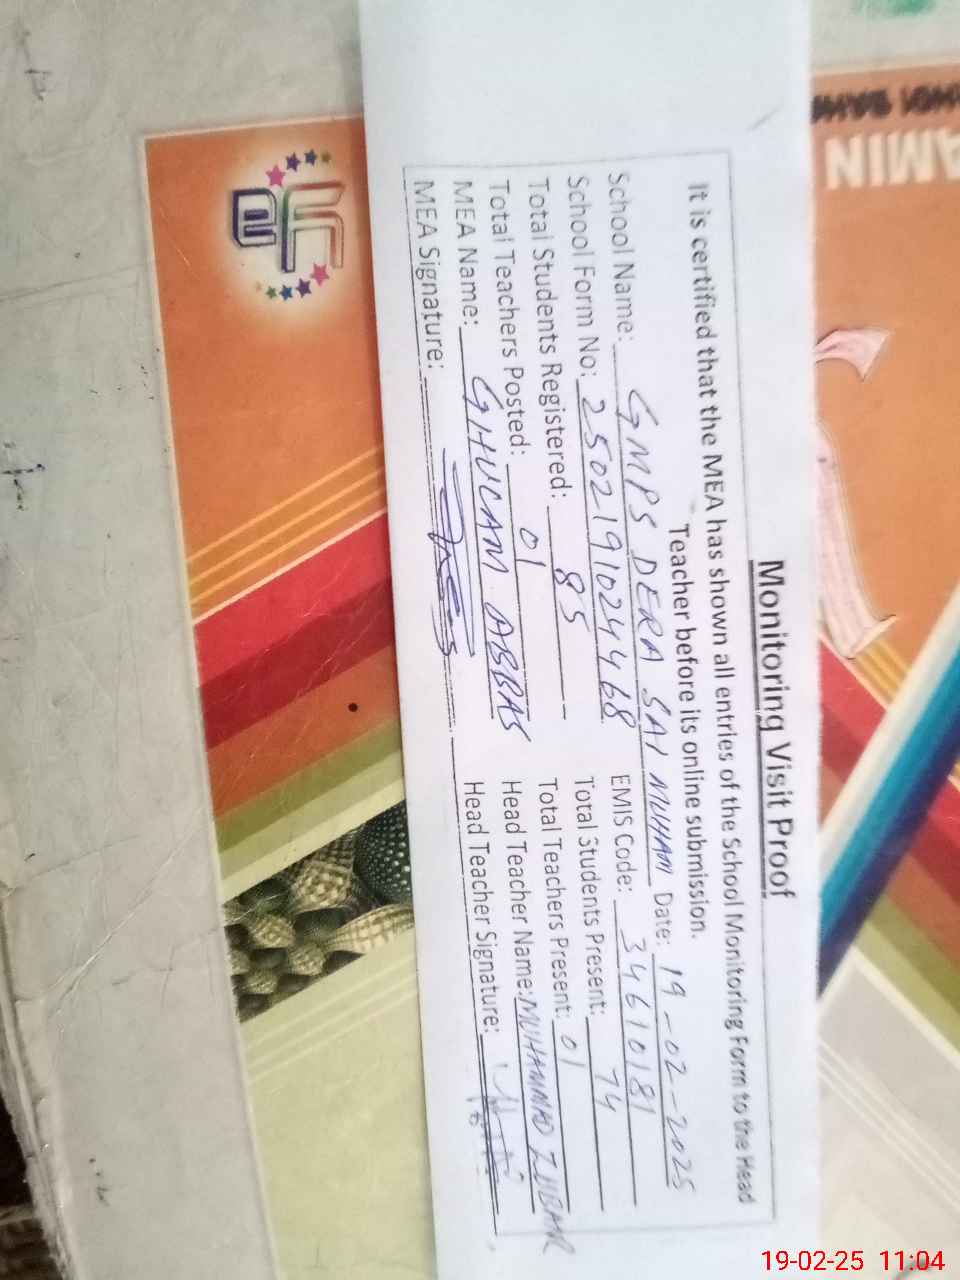 Monitoring Visit Proof
It is certified that the MEA has shown all entries of the School Monitoring Form to the Head
Teacher before its online submission.
School Name: GMPS DERA SAI MUHAM Date: 19-02-2025
School Form No: 25021910244 68 EMIS Code: 34610181
Total Students Registered: 85 Total Students Present: 74
Total Teachers Posted: 01 Total Teachers Present: 01
MEA Name: GHULAM ABBAS Head Teacher Name: MUHAMMAD ZUBAIR
MEA Signature: Head Teacher Signature:
AMIN
19-02-25 11:04